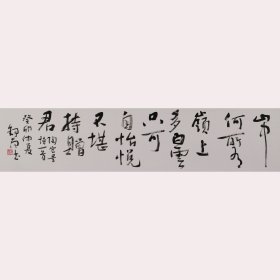 山中
何所有
嶺上
多白雲
只可
自怡悅
不堪
持贈
君
陶弘景
詩一首
癸卯仲夏